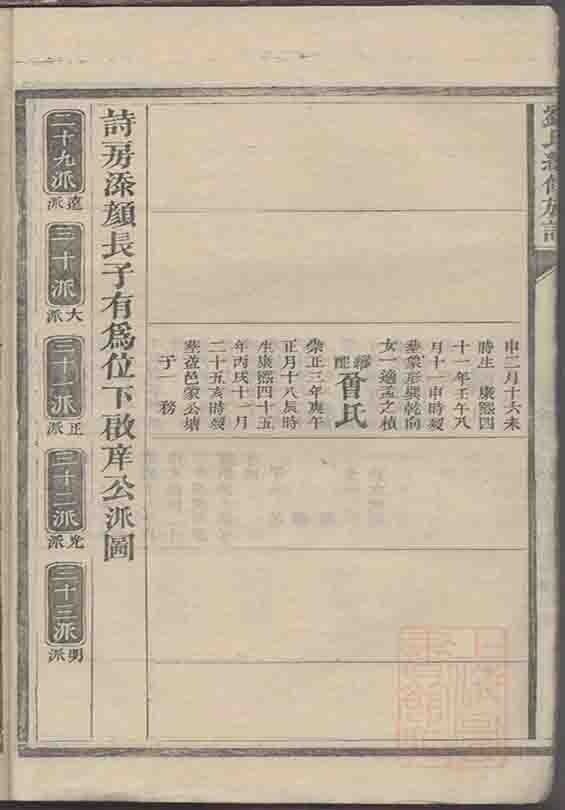 申二月十六未
時生 康熙四
十一年壬午八
月十一申時歿
葬象形巽乾向
女一適孟之楨
繼配
胥氏
崇正三年庚午
正月十八辰時
生康熙四十五
年丙戌十一月
二十五亥時歿
葬益邑蒙公塘
子一 務
詩房添顏長子有爲位下啟庠公派圖
二十九派
遠派
三十派
大派
三十一派
正派
三十二派
光派
三十三派
明派